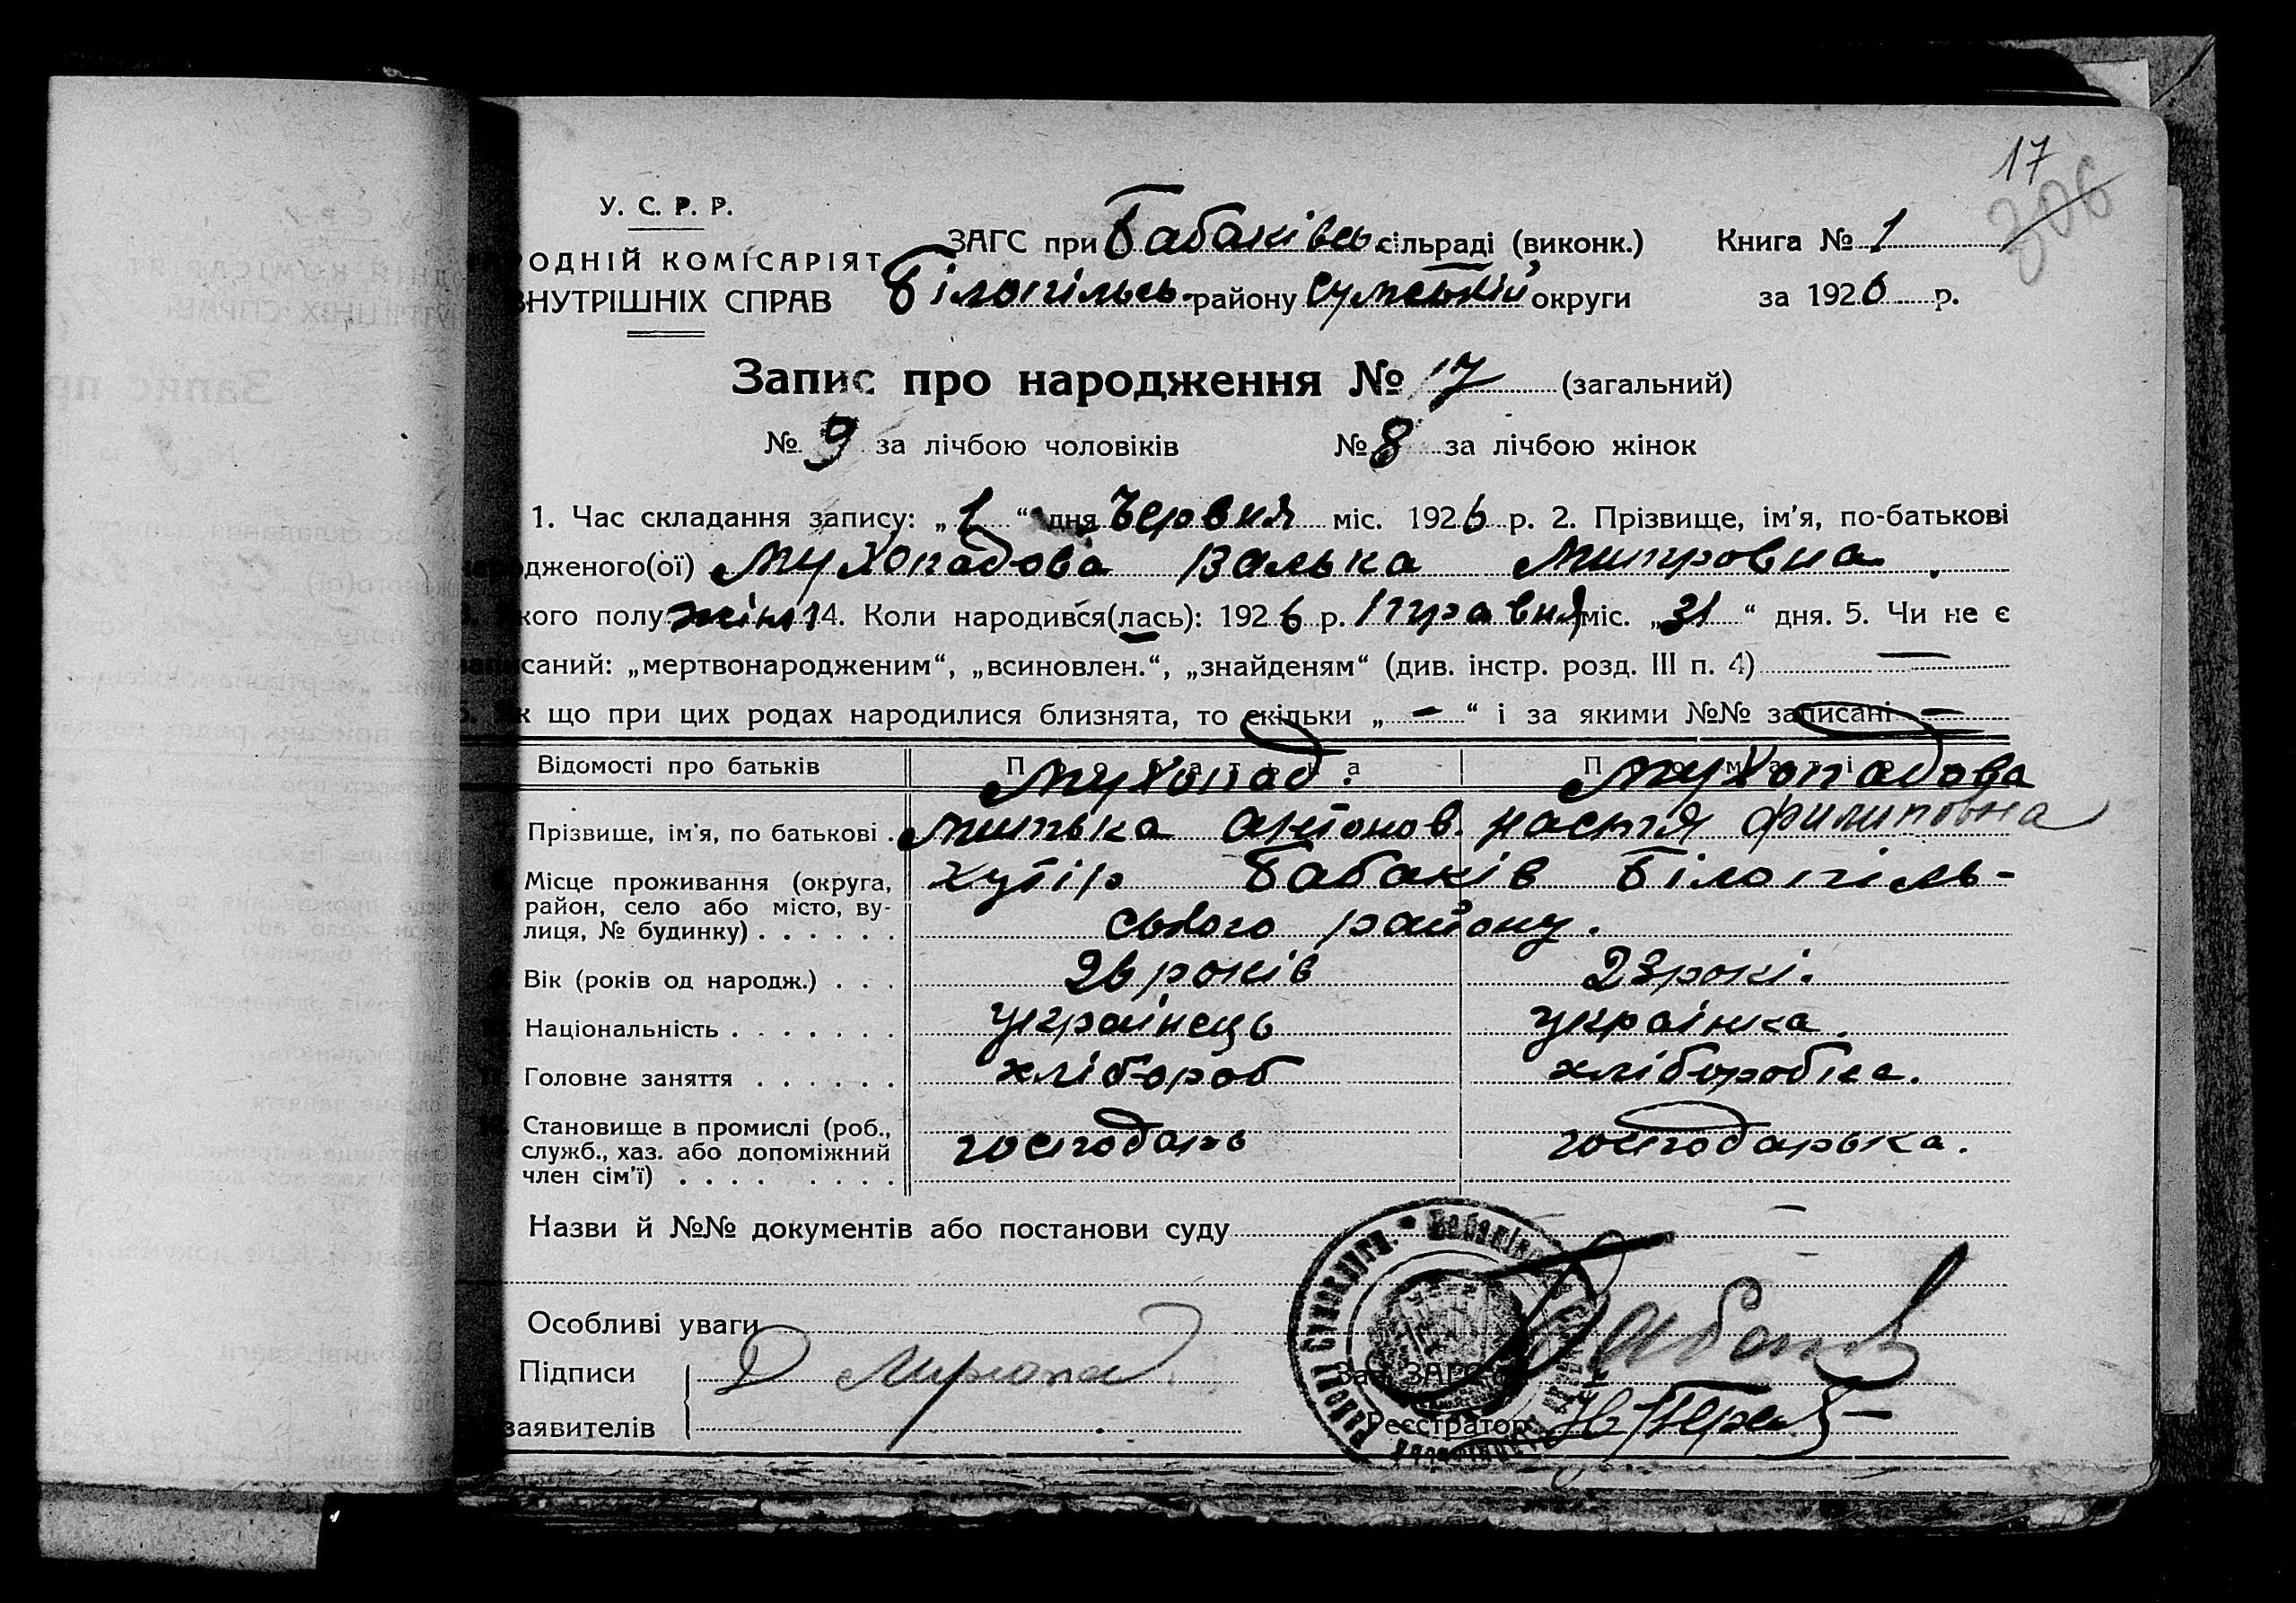 17
306
У. С. Р. Р.
РОДНІЙ КОМІСАРІЯТ
ВНУТРІШНІХ СПРАВ
ЗАГС при Бабаківсь. сільраді (виконк.)
Білопільсь. району Сумській округи
Книга № 1
за 1926 р.
Запис про народження № 17 (загальний)
№ 9 за лічбою чоловіків № 8 за лічбою жінок
1. Час складання запису: „1“ дня Червня міс. 1926 р. 2. Прізвище, ім'я, по-батькові
дженого(ої) Мухопадова Валька Митровна.
кого полу жін. 4. Коли народився(лась): 1926 р. Травня міс. „31“ дня. 5. Чи не є
саний: „мертвонародженим“, „всиновлен.“, „знайденям“ (див. інстр. розд. III п. 4) —
к що при цих родах народилися близнята, то скільки „ — “ і за якими №№ записані —
Відомості про батьків Мухопад. Мухопадова
Прізвище, ім'я, по батькові . Митька Антонов. Настя Филиповна
Місце проживання (округа, район, село або місто, вулиця, № будинку) . . . . . . хутір Бабаків Білопіль-
ського району.
Вік (років од народж.) . . . 26 років 23 рокі.
Національність . . . . . . . українець українка.
Головне заняття . . . . . . хлібороб хліборобка.
Становище в промислі (роб.,
служб., хаз. або допоміжний господарь господарька.
член сім'ї) . . . . . . . .
Назви й №№ документів або постанови суду —
Особливі уваги
Підписи
заявителів
Зав. ЗАГС'ом
Реєстратор